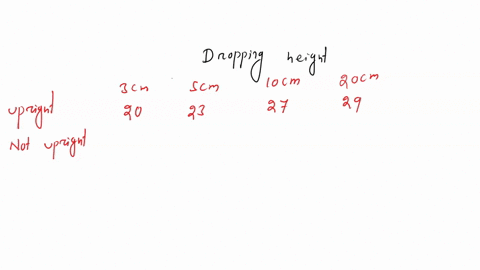 Dropping height
3cm 5cm 10cm 20cm
upright 20 23 27 29
Not upright